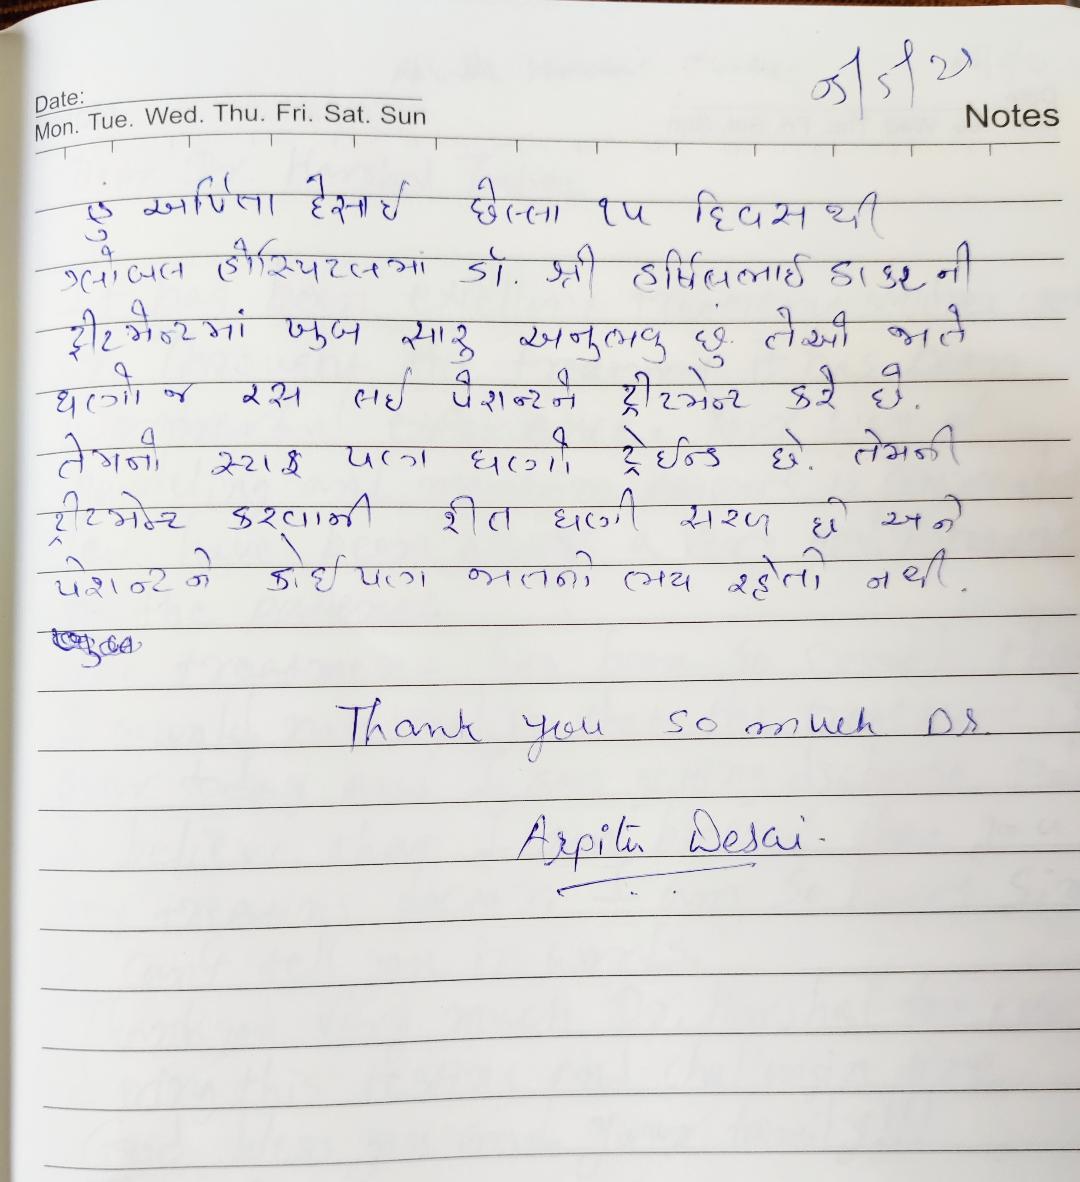 Date:
Mon. Tue. Wed. Thu. Fri. Sat. Sun
Notes
હું અર્પિતા દેસાઈ છેલ્લા ૧૫ દિવસ થી
ગ્લોબલ હોસ્પિટલમાં ડૉ. શ્રી હર્ષિલભાઈ ઠાકર ની
ટ્રીટમેન્ટમાં ખુબ સારુ અનુભવુ છું. તેઓ જાતે
ઘણો જ રસ લઈ પેશન્ટને ટ્રીટમેન્ટ કરે છે.
તેમનો સ્ટાફ પણ ઘણો ટ્રેઈન્ડ છે. તેમની
ટ્રીટમેન્ટ કરવાની રીત ઘણી સરળ છે અને
પેશન્ટ ને કોઈ પણ જાતનો ભય રહેતો નથી.
Thank you so much Dr.
Arpita Desai.